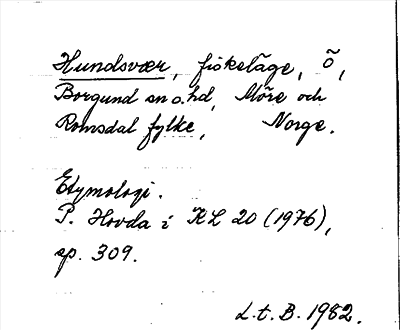 Hundsvær, fiskeläge, ö,
Borgund sn o.hd, Möre och
Romsdal fylke, Norge.
Etymologi.
P. Hovda i KL 20 (1976),
sp. 309.
L.t.B. 1982.